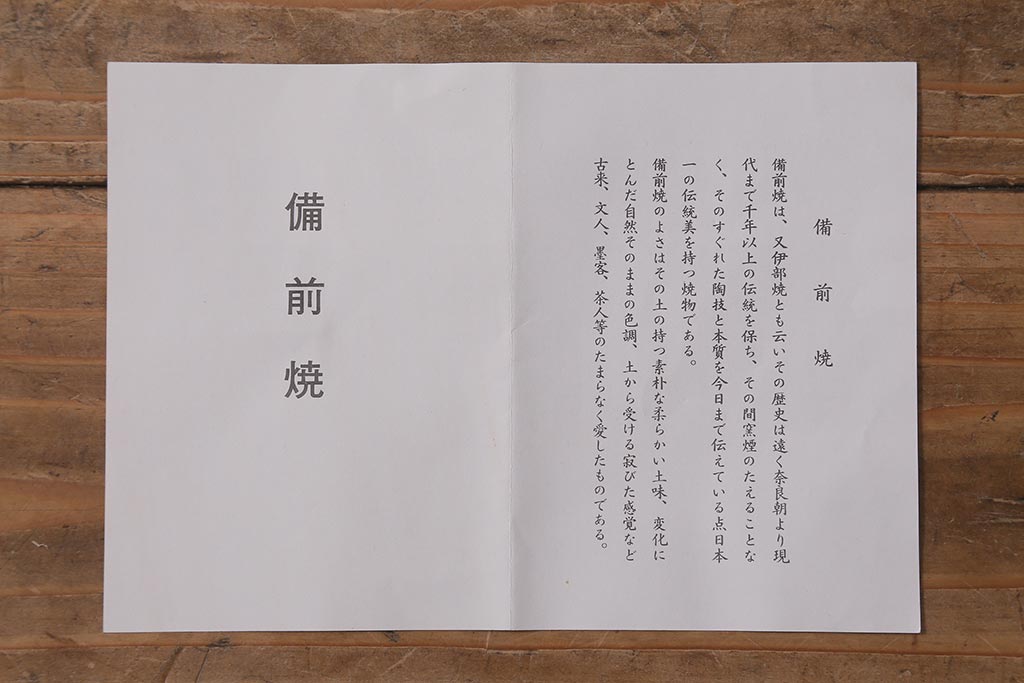 備前焼
備前焼は、又伊部焼とも云いその歴史は遠く奈良朝より現
代まで千年以上の伝統を保ち、その間窯煙のたえることな
く、そのすぐれた陶技と本質を今日まで伝えている点日本
一の伝統美を持つ焼物である。
備前焼のよさはその土の持つ素朴な柔らかい土味、変化に
とんだ自然そのままの色調、土から受ける寂びた感覚など
古来、文人、墨客、茶人等のたまらなく愛したものである。
備前焼